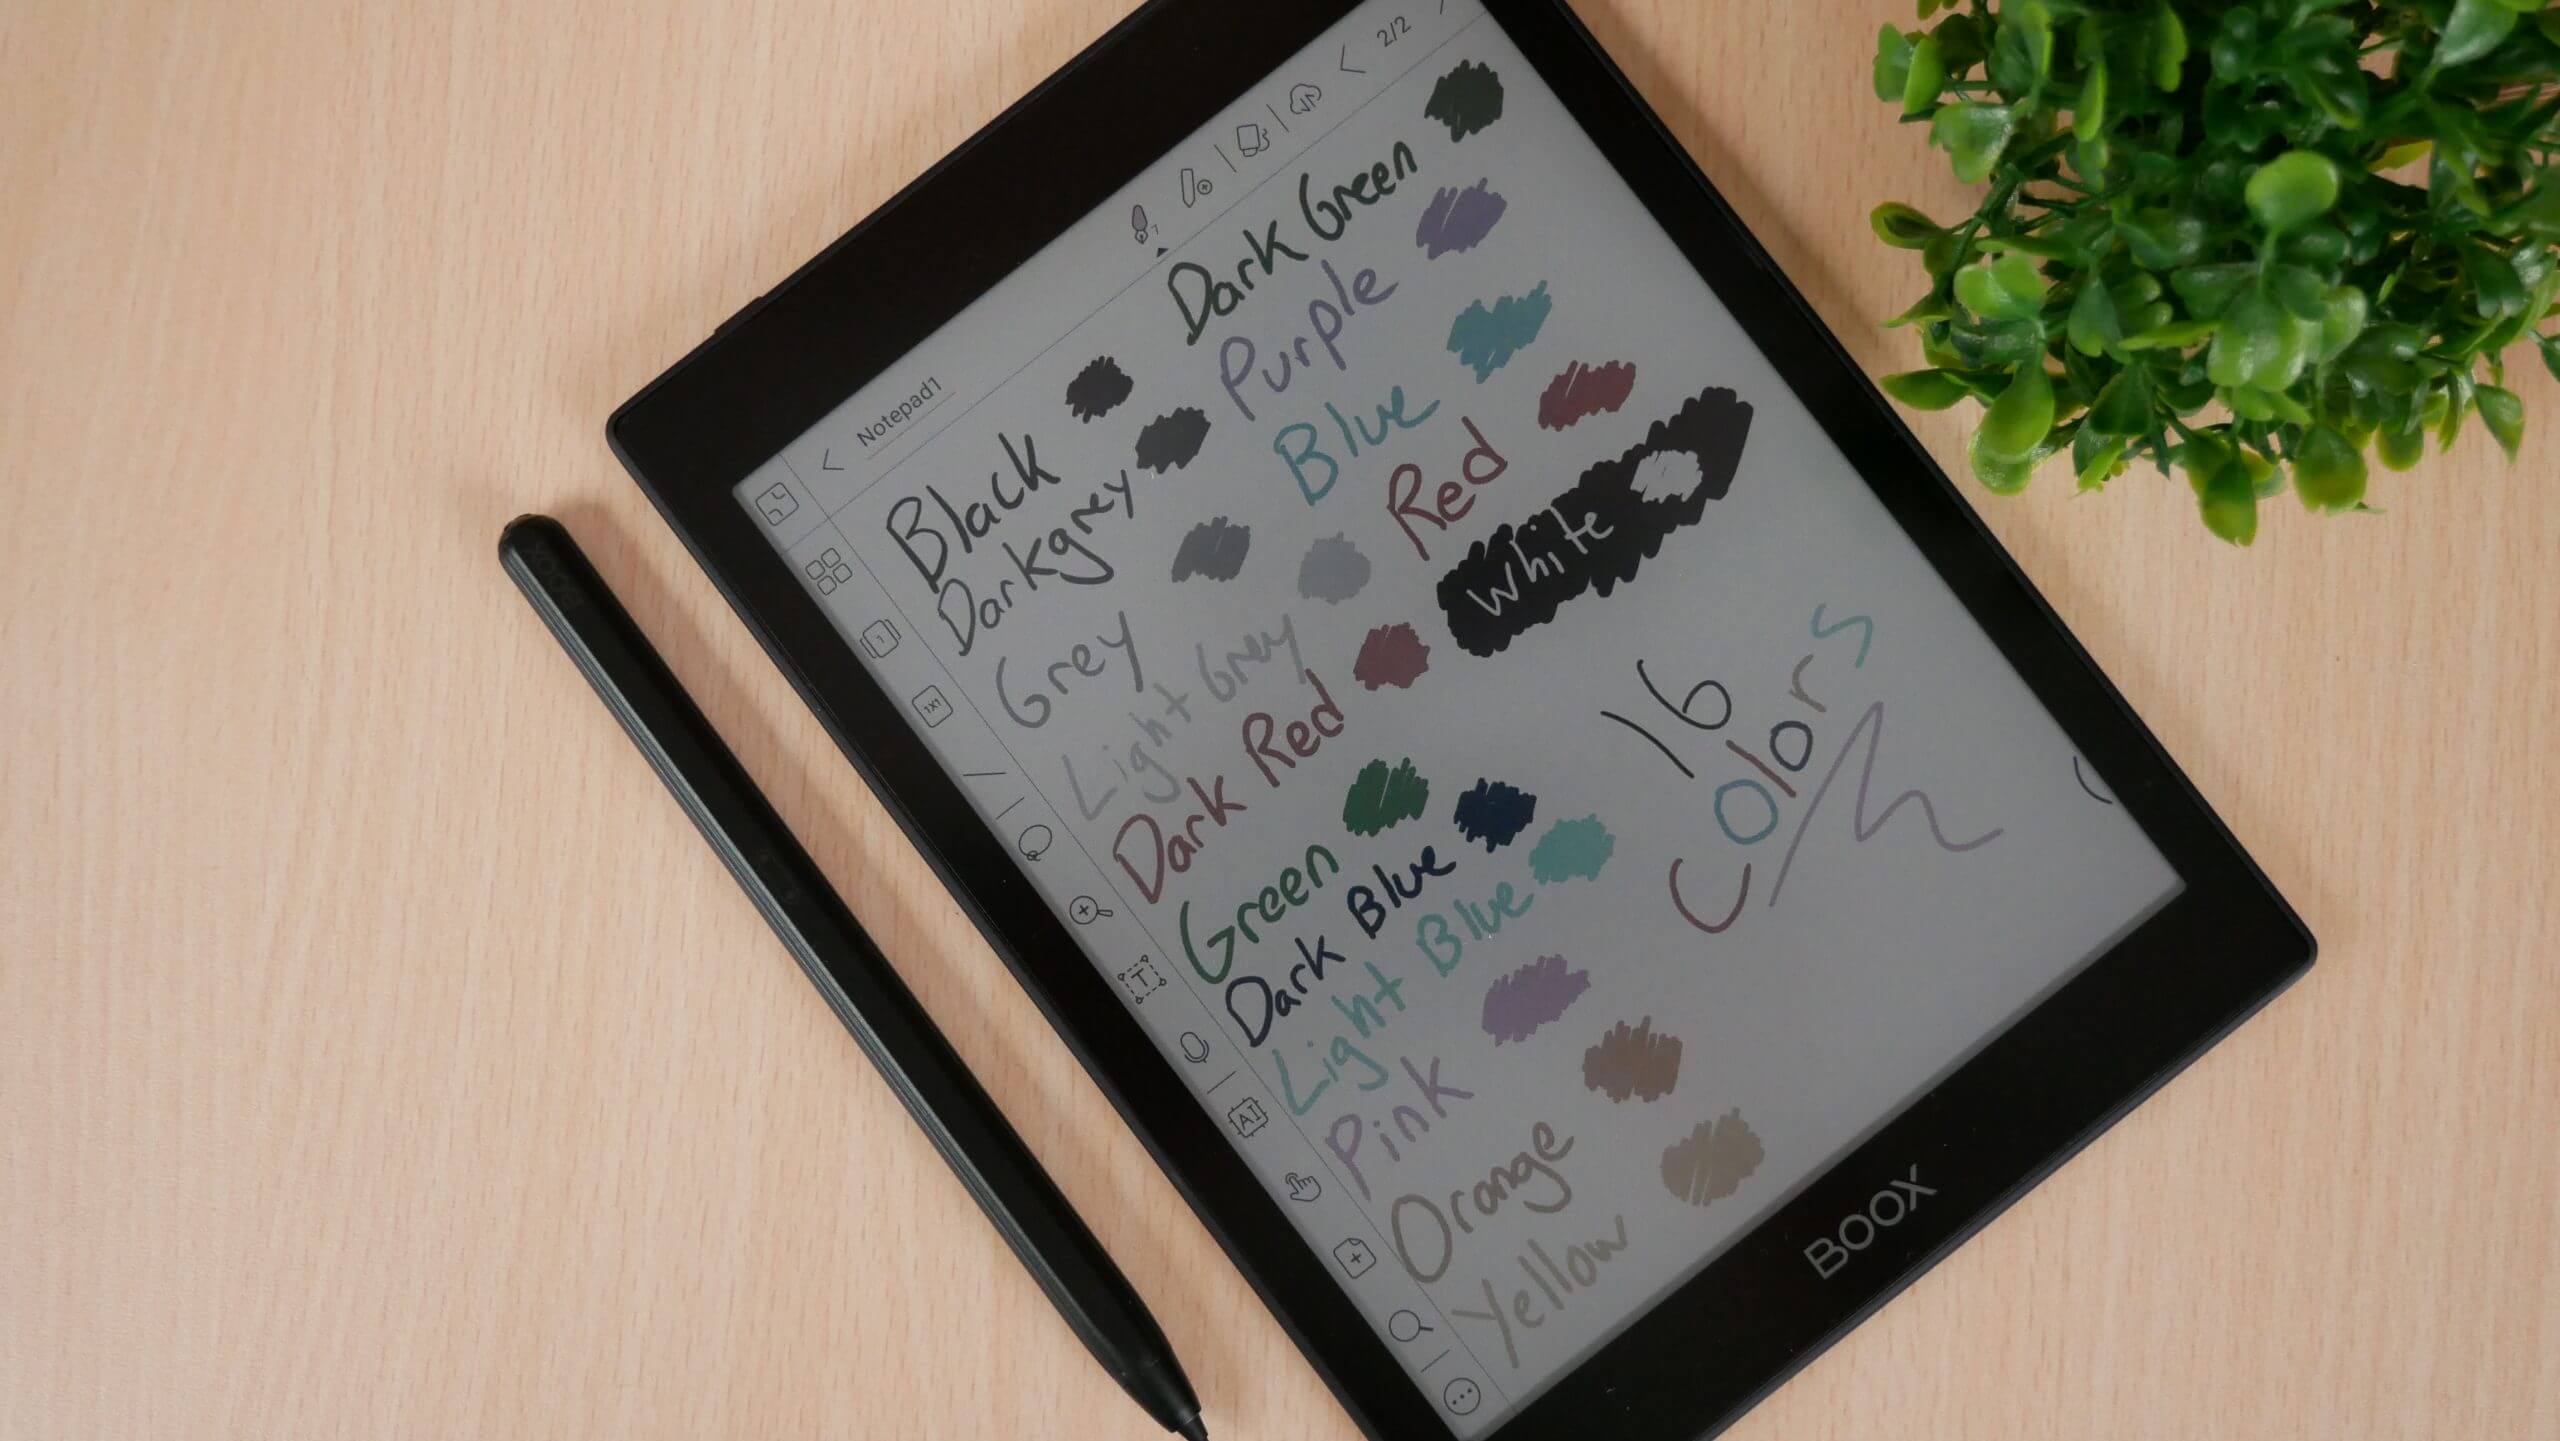 Notepad1
7
2/2
Black
Darkgrey
Grey
Light Grey
Dark Red
Green
Dark Blue
Light Blue
Pink
Orange
Yellow
Dark Green
Purple
Blue
Red
White
16
colors
1
1X1
T
AI
BOOX
BOOX